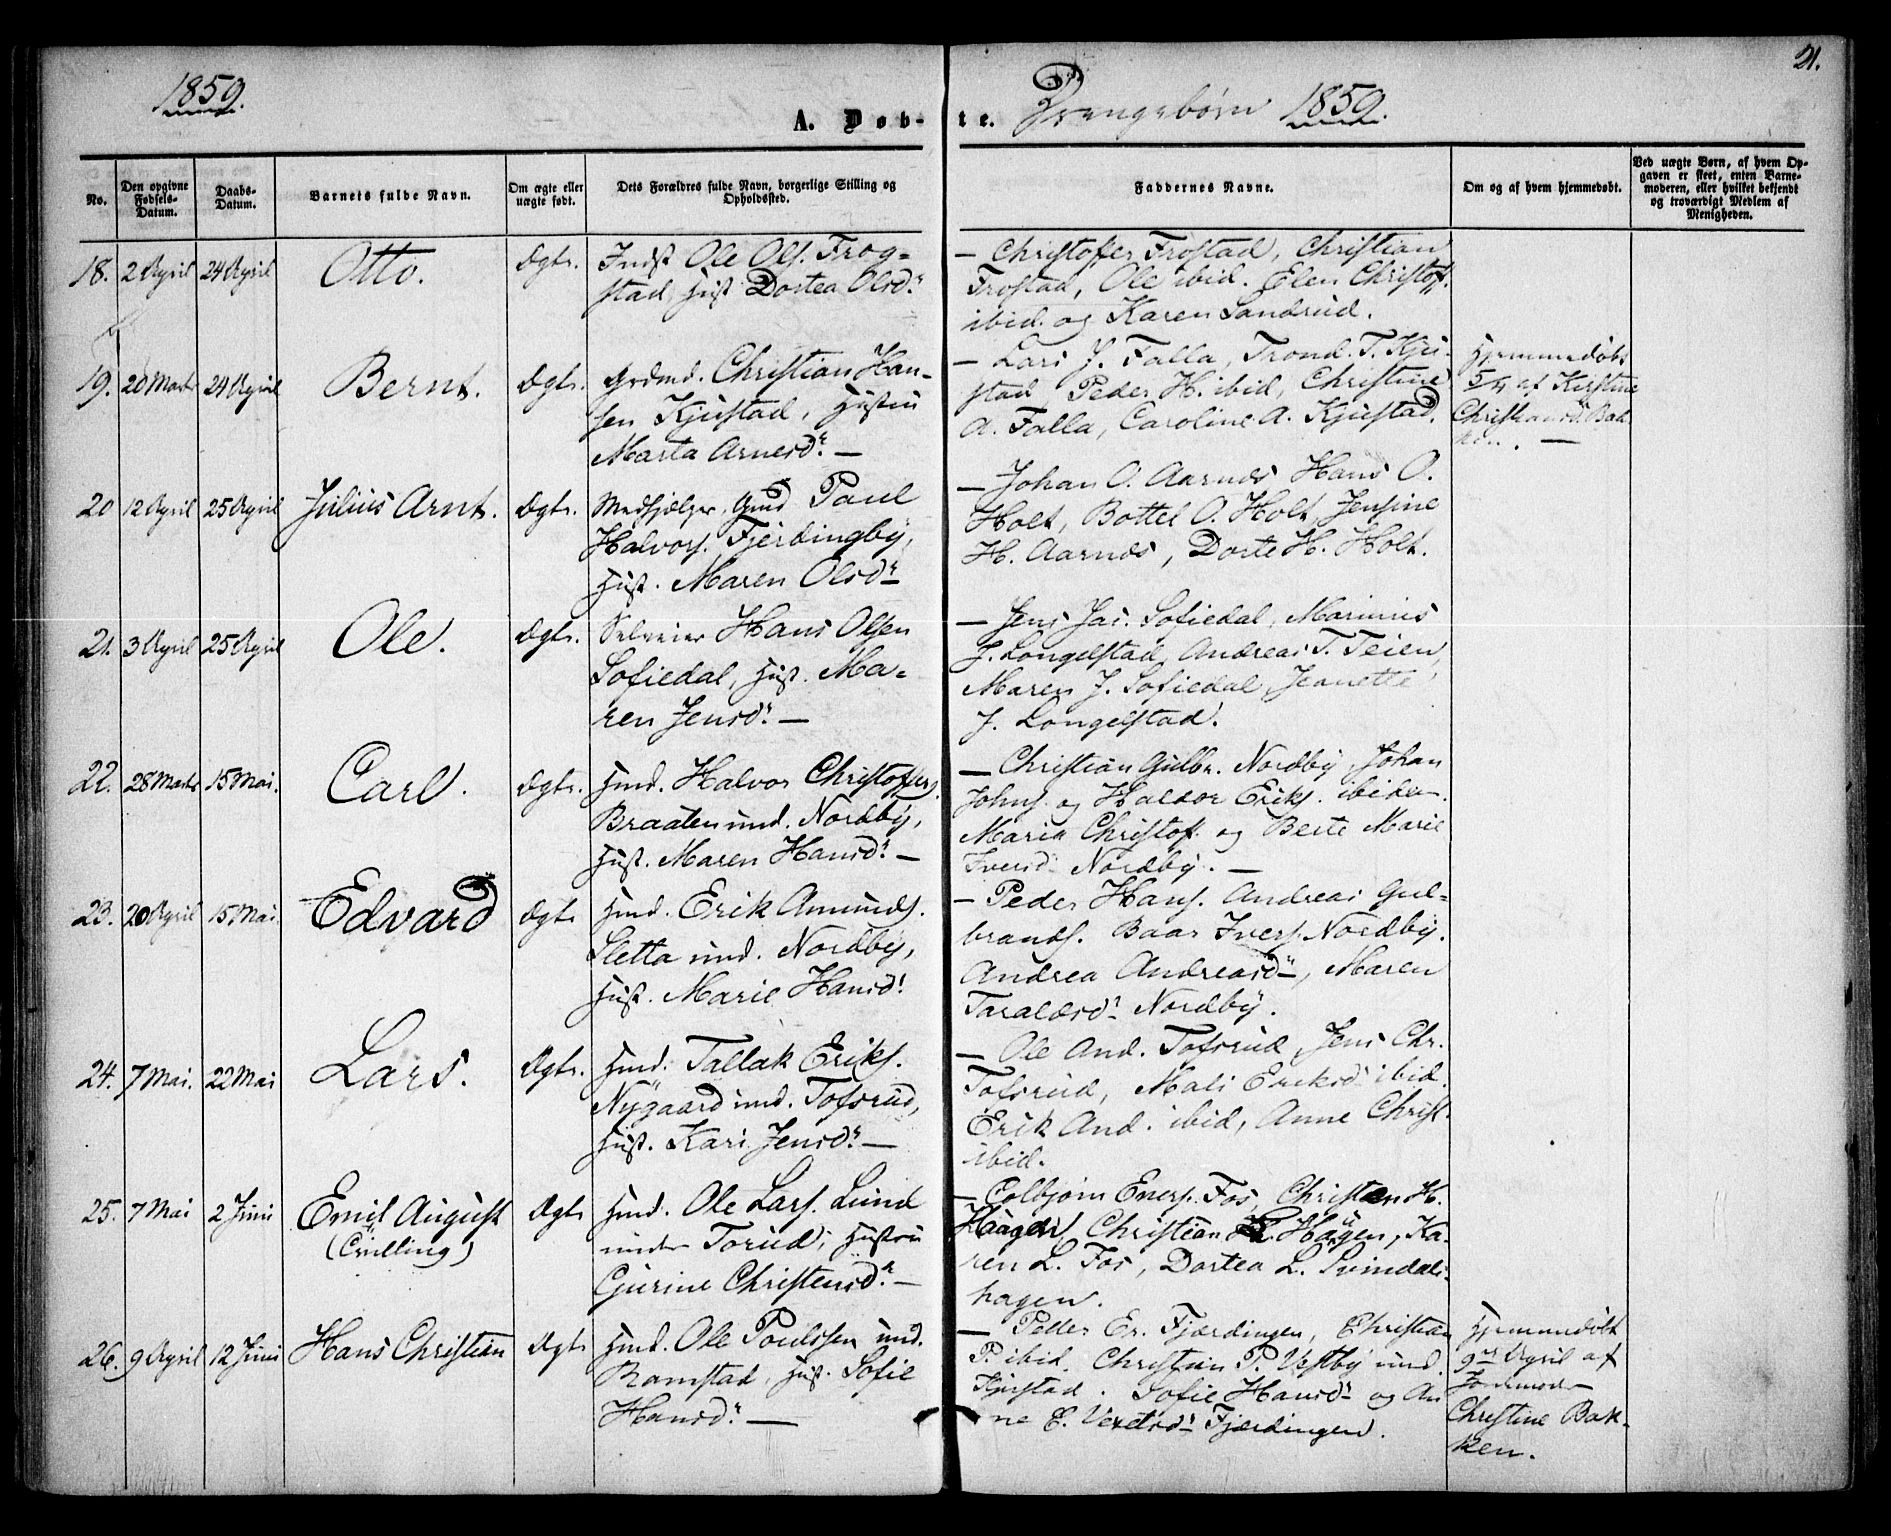 21.
1859.
A. Døb-
te. Drengebørn 1859.
No.
Den opgivne Fødsels-Datum.
Daabs-Datum.
Barnets fulde Navn.
Om ægte eller uægte født.
Dets Forældres fulde Navn, borgerlige Stilling og Opholdssted.
Faddernes Navne.
Om og af hvem hjemmedøbt.
Ved uægte Børn, af hvem Opgaven er skeet, enten Barnemoderen, eller hvilket bekjendt og troværdigt Medlem af Menigheden.
18. 2 April 24 April Otto. Ægte.
Indst Ole Ols. Frog-
stad Hust Dortea Olsd.
— Christoffer Frostad, Christian
Frostad, Ole ibid. Elen Christof.
ibid. og Karen Sandrud.
19. 20 Marts 24 April Bernt. Ægte.
Grdmd. Christian Han-
sen Kjustad, Hustru
Marta Arnesd. —
— Lars J. Falla, Trond. T. Kju-
stad, Peder H. ibid, Christine
A. Falla, Caroline A. Kjustad.
Hjemmedøbt
5/4 af Kirstine
Christiansd. Bak
20 12 April 25 April Julius Arnt. Ægte.
Medhjælper, Gmd Paul
Halvors. Fjerdingby,
Hust. Maren Olsd
— Johan O. Aarnes Hans O.
Holt, Bottel O. Holt, Jensine
H. Aarnes, Dorte H. Holt.
21. 3 April 25 April Ole. Ægte.
Selveier Hans Olsen
Sofiedal, Hust. Ma-
ren Jensd. —
— Jens Jas. Sofiedal, Marinus
J. Longelstad, Andreas T. Teien,
Maren J. Sofiedal, Jeanette
J. Longelstad.
22. 28 Marts 15 Mai. Carl. Ægte.
Hmd. Halvor Christoffers.
Braaten und. Nordby,
Hust. Maren Hansd. —
— Christian Gulbr. Nordby, Johan
Johns. og Haldor Eriks. ibidem.
Maria Christof. og Berte Marie
Iversd Nordby. —
23. 20 April 15 Mai. Edvard Ægte
Hmd. Erik Amunds.
Sletta und. Nordby,
Hust. Marie Hansd.
— Peder Hans. Andreas Gul-
brands. Baar Ivers. Nordby.
Andrea Andreasd, Maren
Taraldsd. Nordby.
24. 7 Mai. 22 Mai Lars. Ægte.
Hmd. Tallak Eriks.
Nygaard und. Tofsrud,
Hust. Kari Jensd. —
— Ole And. Tofsrud, Jens Chr.
Tofsrud, Mali Eriksd ibid.
Erik And. ibid, Anne Christ.
ibid.
25. 7 Mai 2 Juni Emil August Ægte
(Tvilling)
Hmd. Ole Lars. Lund
under Torud, Hustru
Gjurine Christensd. —
— Colbjørn Eners. Fos, Christen H.
Haugen, Christian Haugen, Ka-
ren L. Fos, Dortea L. Svindals-
hagen.
26. 9 April 12 Juni Hans Christian Ægte
Hmd. Ole Poulssen und.
Ramstad, Hust. Sofie
Hansd. —
— Peder Er. Fjerdingen, Christian
P. ibid. Christian P. Vestby und
Kjustad. Sofie Hansd og An
ne E. Fjærdingen.
Hjemmedøbt
9de April af
Jordemoder
Christine Bak-
ken.